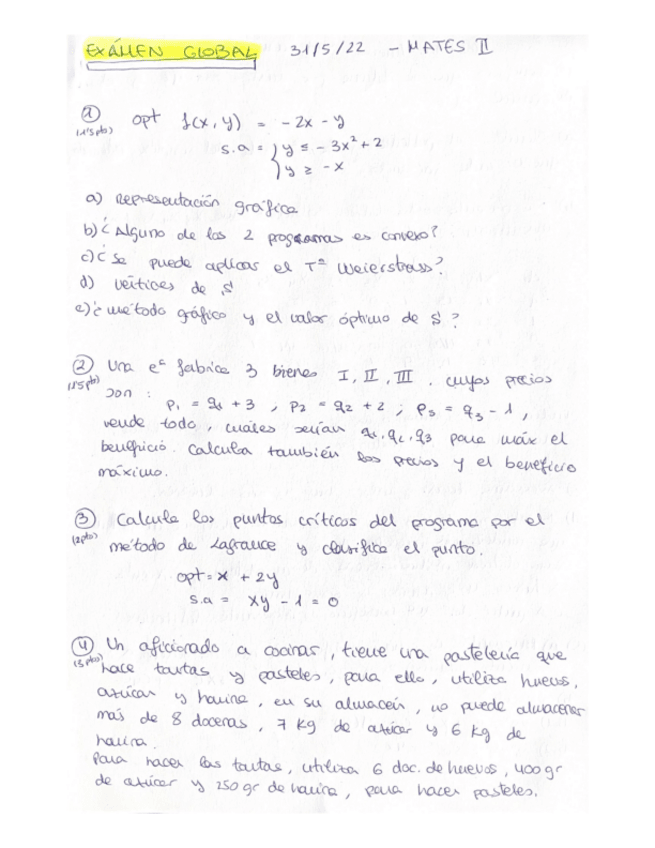 EXÁMEN GLOBAL 31/5/22 - MATES II
① opt f(x,y) = -2x - y
(1'5 pts) s.a = { y ≤ -3x² + 2
y ≥ -x
a) Representación gráfica
b) ¿Alguno de los 2 programas es convexo?
c) ¿Se puede aplicar el Tª Weierstrass?
d) vértices de S
e) ¿método gráfico y el valor óptimo de S?
② Una eª fabrica 3 bienes I, II, III. cuyos precios
(1'5 pts) son :
P₁ = q₁ + 3 , P₂ = q₂ + 2 ; P₃ = q₃ - 1 ,
vende todo, cuáles serían q₁, q₂, q₃ para máx el
beneficio. Calcula también los precios y el beneficio
máximo.
③ Calcula los puntos críticos del programa por el
(2pts) método de Lagrance y clasifica el punto.
opt = x + 2y
s.a = xy - 1 = 0
④ Un aficionado a cocinar, tiene una pastelería que
(3 pts) hace tartas y pasteles, para ello, utiliza huevos,
azúcar y harina, en su almacén, no puede almacenar
más de 8 docenas, 7 kg de azúcar y 6 kg de
harina.
Para hacer las tartas, utiliza 6 doc. de huevos, 400 gr
de azúcar y 250 gr de harina, para hacer pasteles.